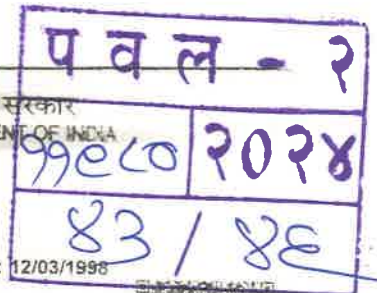 पवल - २
सरकार
NT OF INDIA
११९८० २०२४
४३ / ४६
: 12/03/1998